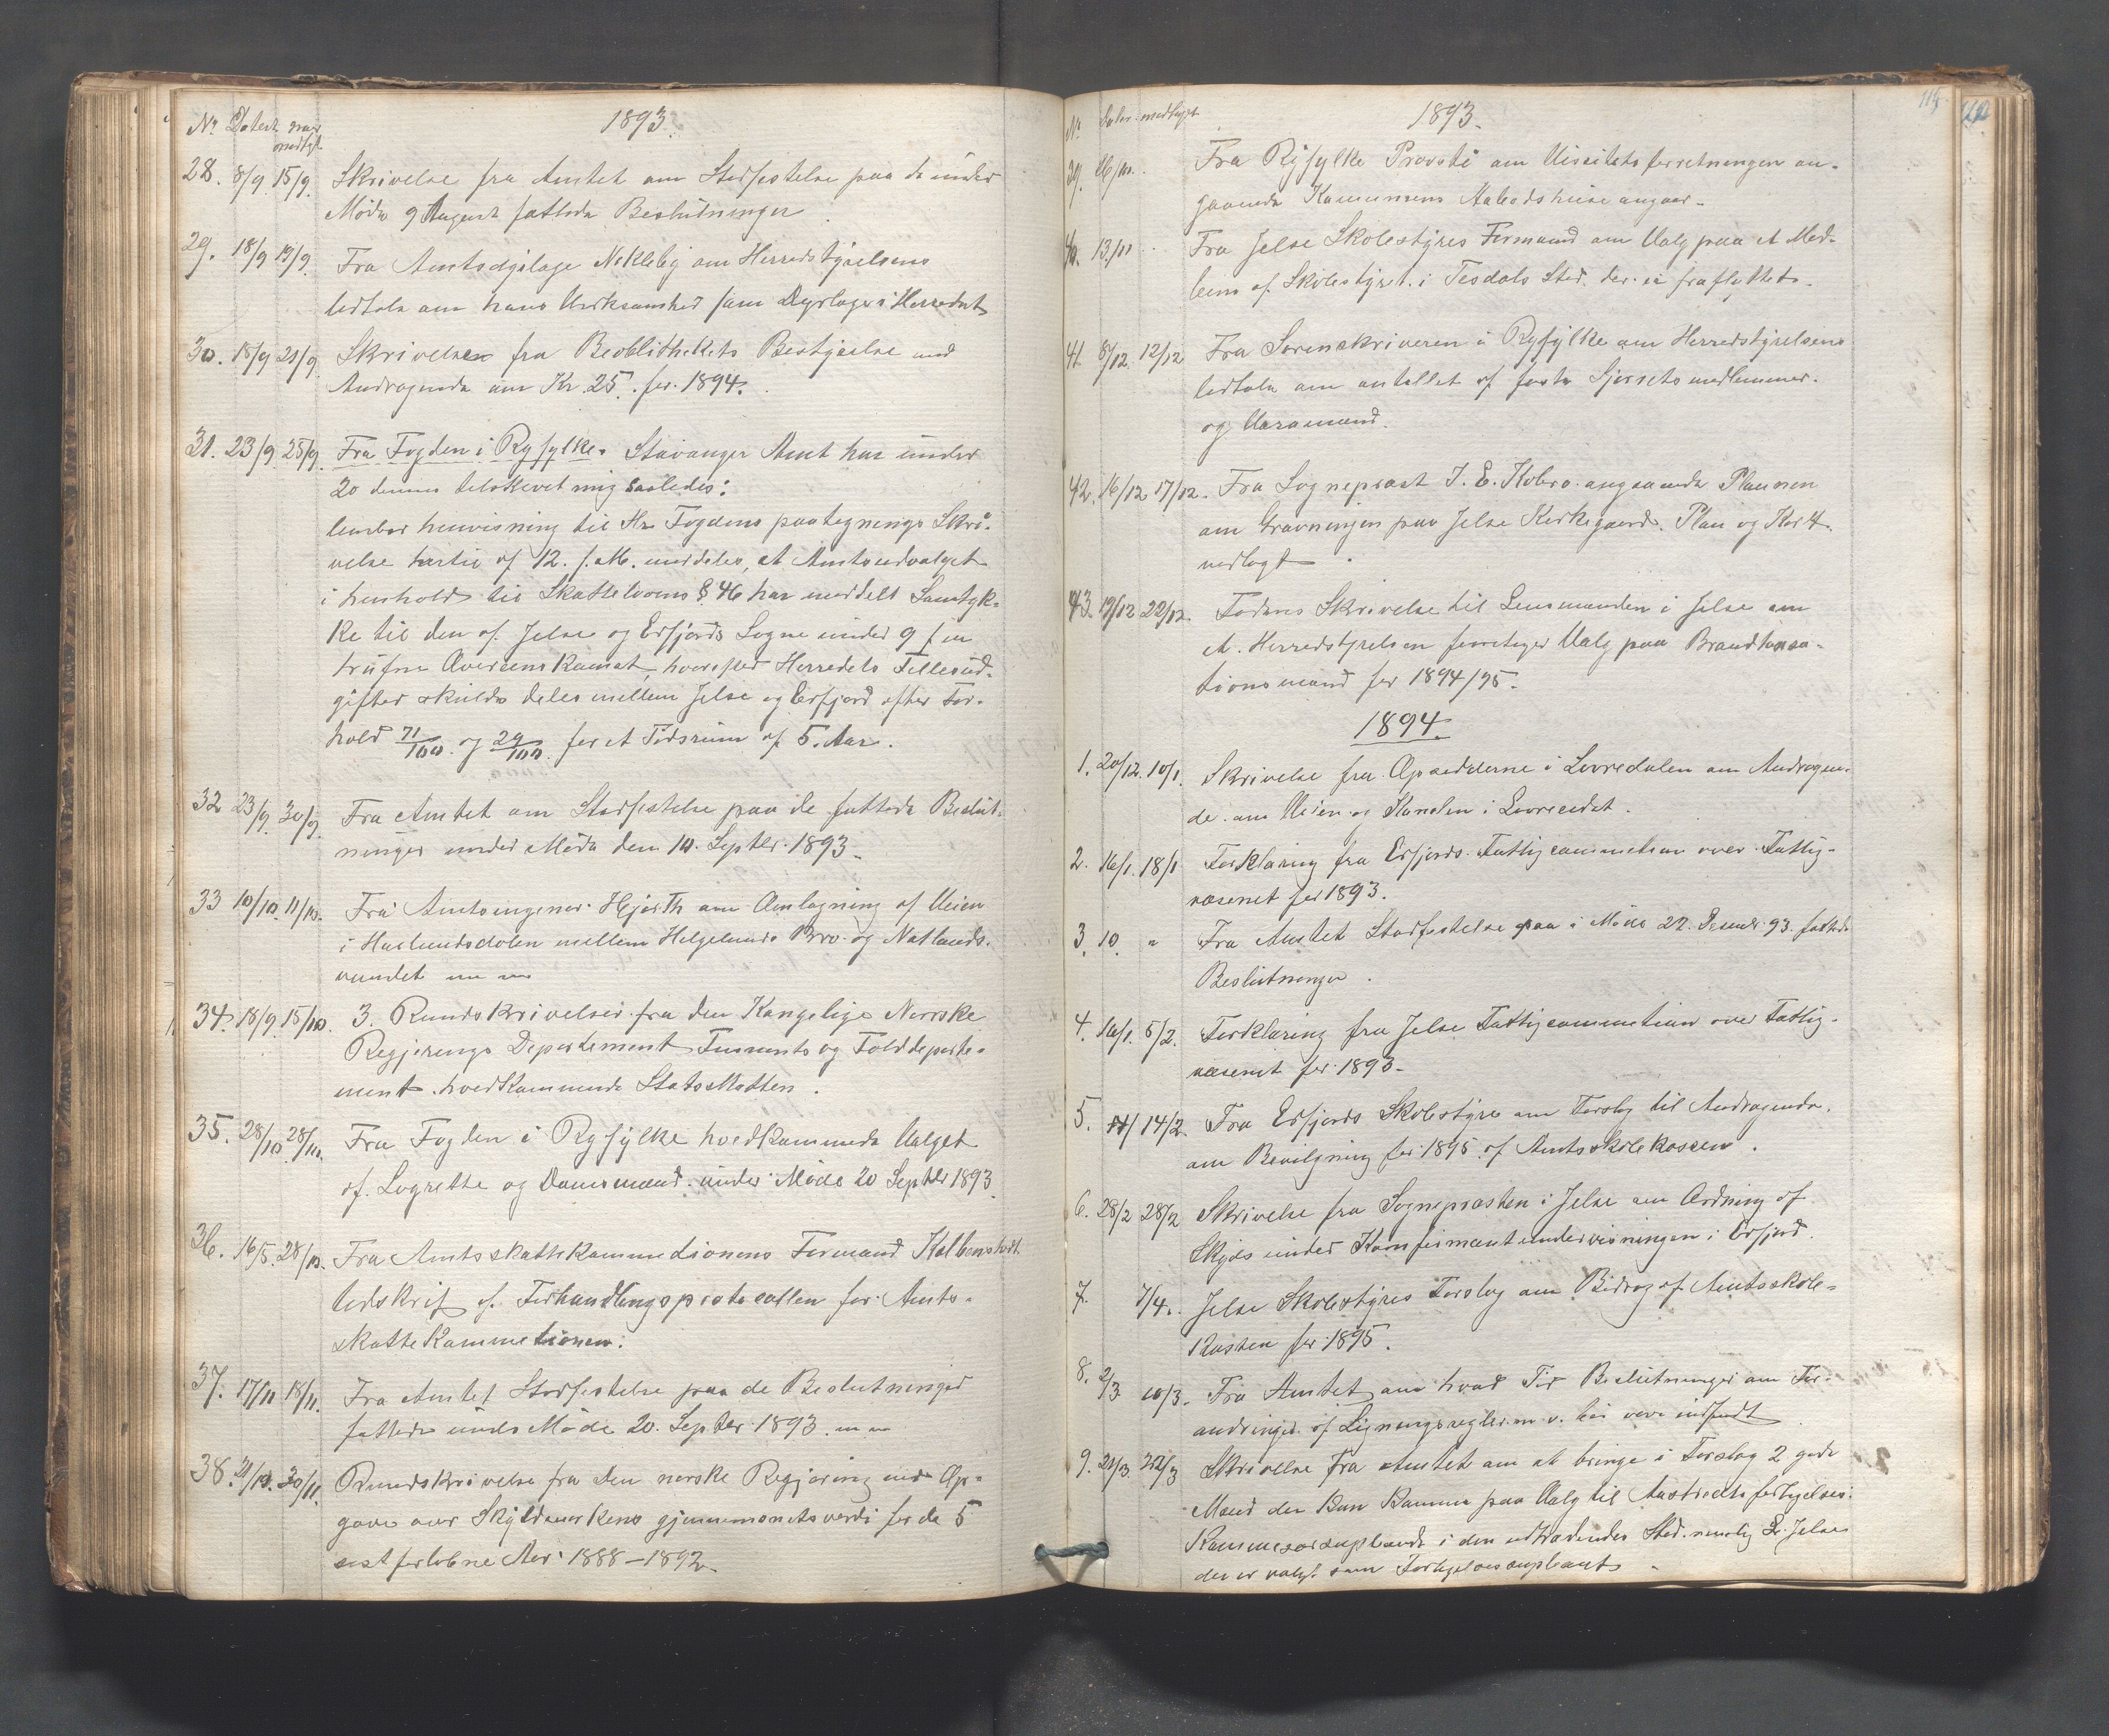 1893.
No Datert naar modtgt.
28. 8/9 15/9. Skrivelse fra Amtet om Stadfestelse paa de under
Møde 9 August fattede Beslutninger.
29. 18/9 19/9. Fra Amtsdyrlæge Nekleby om Herredstyrelsens
Udtale om hans Virksomhed som Dyrlæge i Herredet
30. 18/9 21/9. Skrivelsen fra Beoblithekets Bestyrelse med
Andragende om Kr 25. for 1894.
31. 23/9 25/9. Fra Fogden i Ryfylke. Stavanger Amt har under
20 dennes tilskrevet mig saaledes:
henvisning til Hr Fogdens paategnings Skri-
velse hertil af 12. f. M. meddeles, at Amtsudvalget
i henhold til Skattelovens § 46 har meddelt Samtyk-
ke til den af Jelse og Erfjords Sogne under 9 f m
trufne Overenskomst, hvorefter Herredets Fellesud-
gifter skulde deles mellem Jelse og Erfjord efter For-
hold 71/100 og 29/100 for et Tidsrum af 5 Aar.
32 23/9. 30/9 Fra Amtet om Stadfestelse paa de fattede Beslut-
ninger under Møde den 10. Septbr. 1893.
33 10/10. 11/10. Fra Amtsingeniør Hjorth om Omlægning af Veien
i Haslundsdalen mellem Helgelands Bro og Natlands-
vandet
34. 18/9 15/10. 3. Rundskrivelser fra den Kongelige Norske
Regjerings Departement Finants og Tolddeparte-
ment hvedkommende Statsskatten.
35. 28/10 28/10. Fra Fogden i Ryfylke hvedkommende Valget
af Lagrette og Domsmænd under Møde 20 Septbr 1893.
36. 16/5. 28/10. Fra Amtsskattekommetionens Formand Kolbenstvedt
Udskrift af Forhandlingsprotocollen for Amts-
skattekommetionen.
37. 17/11 18/11. Fra Amtet Stadfestelse paa de Beslutninger
fattede under Møde 20. Septbr 1893.
38. 21/10. 30/11. Rundskrivelse fra den norske Regjering med Op-
gave over Skyldmarkens gjennemsnitsverdi for de 5
sist forløbne Aar 1888-1892.
115
1893.
No Dater. modtaget
39. 16/10. Fra Ryfylke Provsti om Visitatsforretningen an-
gaaende Kommunens Aabodshuse angaar.
40. 13/11 Fra Jelse Skolestyres Formand om Valg paa et Med-
lem af Skolestyret i Tesdals Sted. der er fraflyttet.
41. 8/12. 12/12 Fra Sorenskriveren i Ryfylke om Herredstyrelsens
Udtale om antallet af faste Skjønsretsmedlemmer
og Varamænd.
42. 16/12 17/12. Fra Sogneprest J. E. Kobro angaaende Planen
om Gravningen paa Jelse Kirkegaard. Plan og Kort
vedlagt.
43. 19/12 22/12. Fodens Skrivelse til Lensmanden i Jelse om
at Herredstyrelsen foretager Valg paa Brandtaxa-
tionsmænd for 1894/95.
1894.
1. 20/12. 10/1. Skrivelse fra Opsedderne i Lovredalen om Andragen-
de om Veien og Kanalen i Lovreeidet.
2. 16/1. 18/1 Forklaring fra Erfjords Fattigcommetion over Fattig-
væsenet for 1893.
3. 10. " Fra Amtet Stadfestelse paa i Møde 27. Decembr. 93. fattede
Beslutninger.
4. 16/1. 5/2. Forklaring fra Jelse Fattigcommetion over Fattig-
væsenet for 1893.
5. 14/2. Fra Erfjords Skolestyre om Forslag til Andragende
om Bevilgning for 1895 af Amtsskolekassen.
6. 28/2 28/2 Skrivelse fra Sognepresten i Jelse om Ordning af
Skyds under Konfirmantundervisningen i Erfjord.
7. 7/4. Jelse Skolestyres Forslag om Bidrag af Amtsskole-
kassen for 1895.
8. 2/3 10/3. Fra Amtet om hvad Tid Beslutninger om For-
andringer af Ligningsregler m. v. bør være indsendt
9. 21/3. 22/3 Skrivelse fra Amtet om at bringe i Forslag 2 gode
Mænd der kan komme paa Valg til
i den udtrædendes Sted. nemlig L. Jelse
der er valgt som Forligelsessupleant.